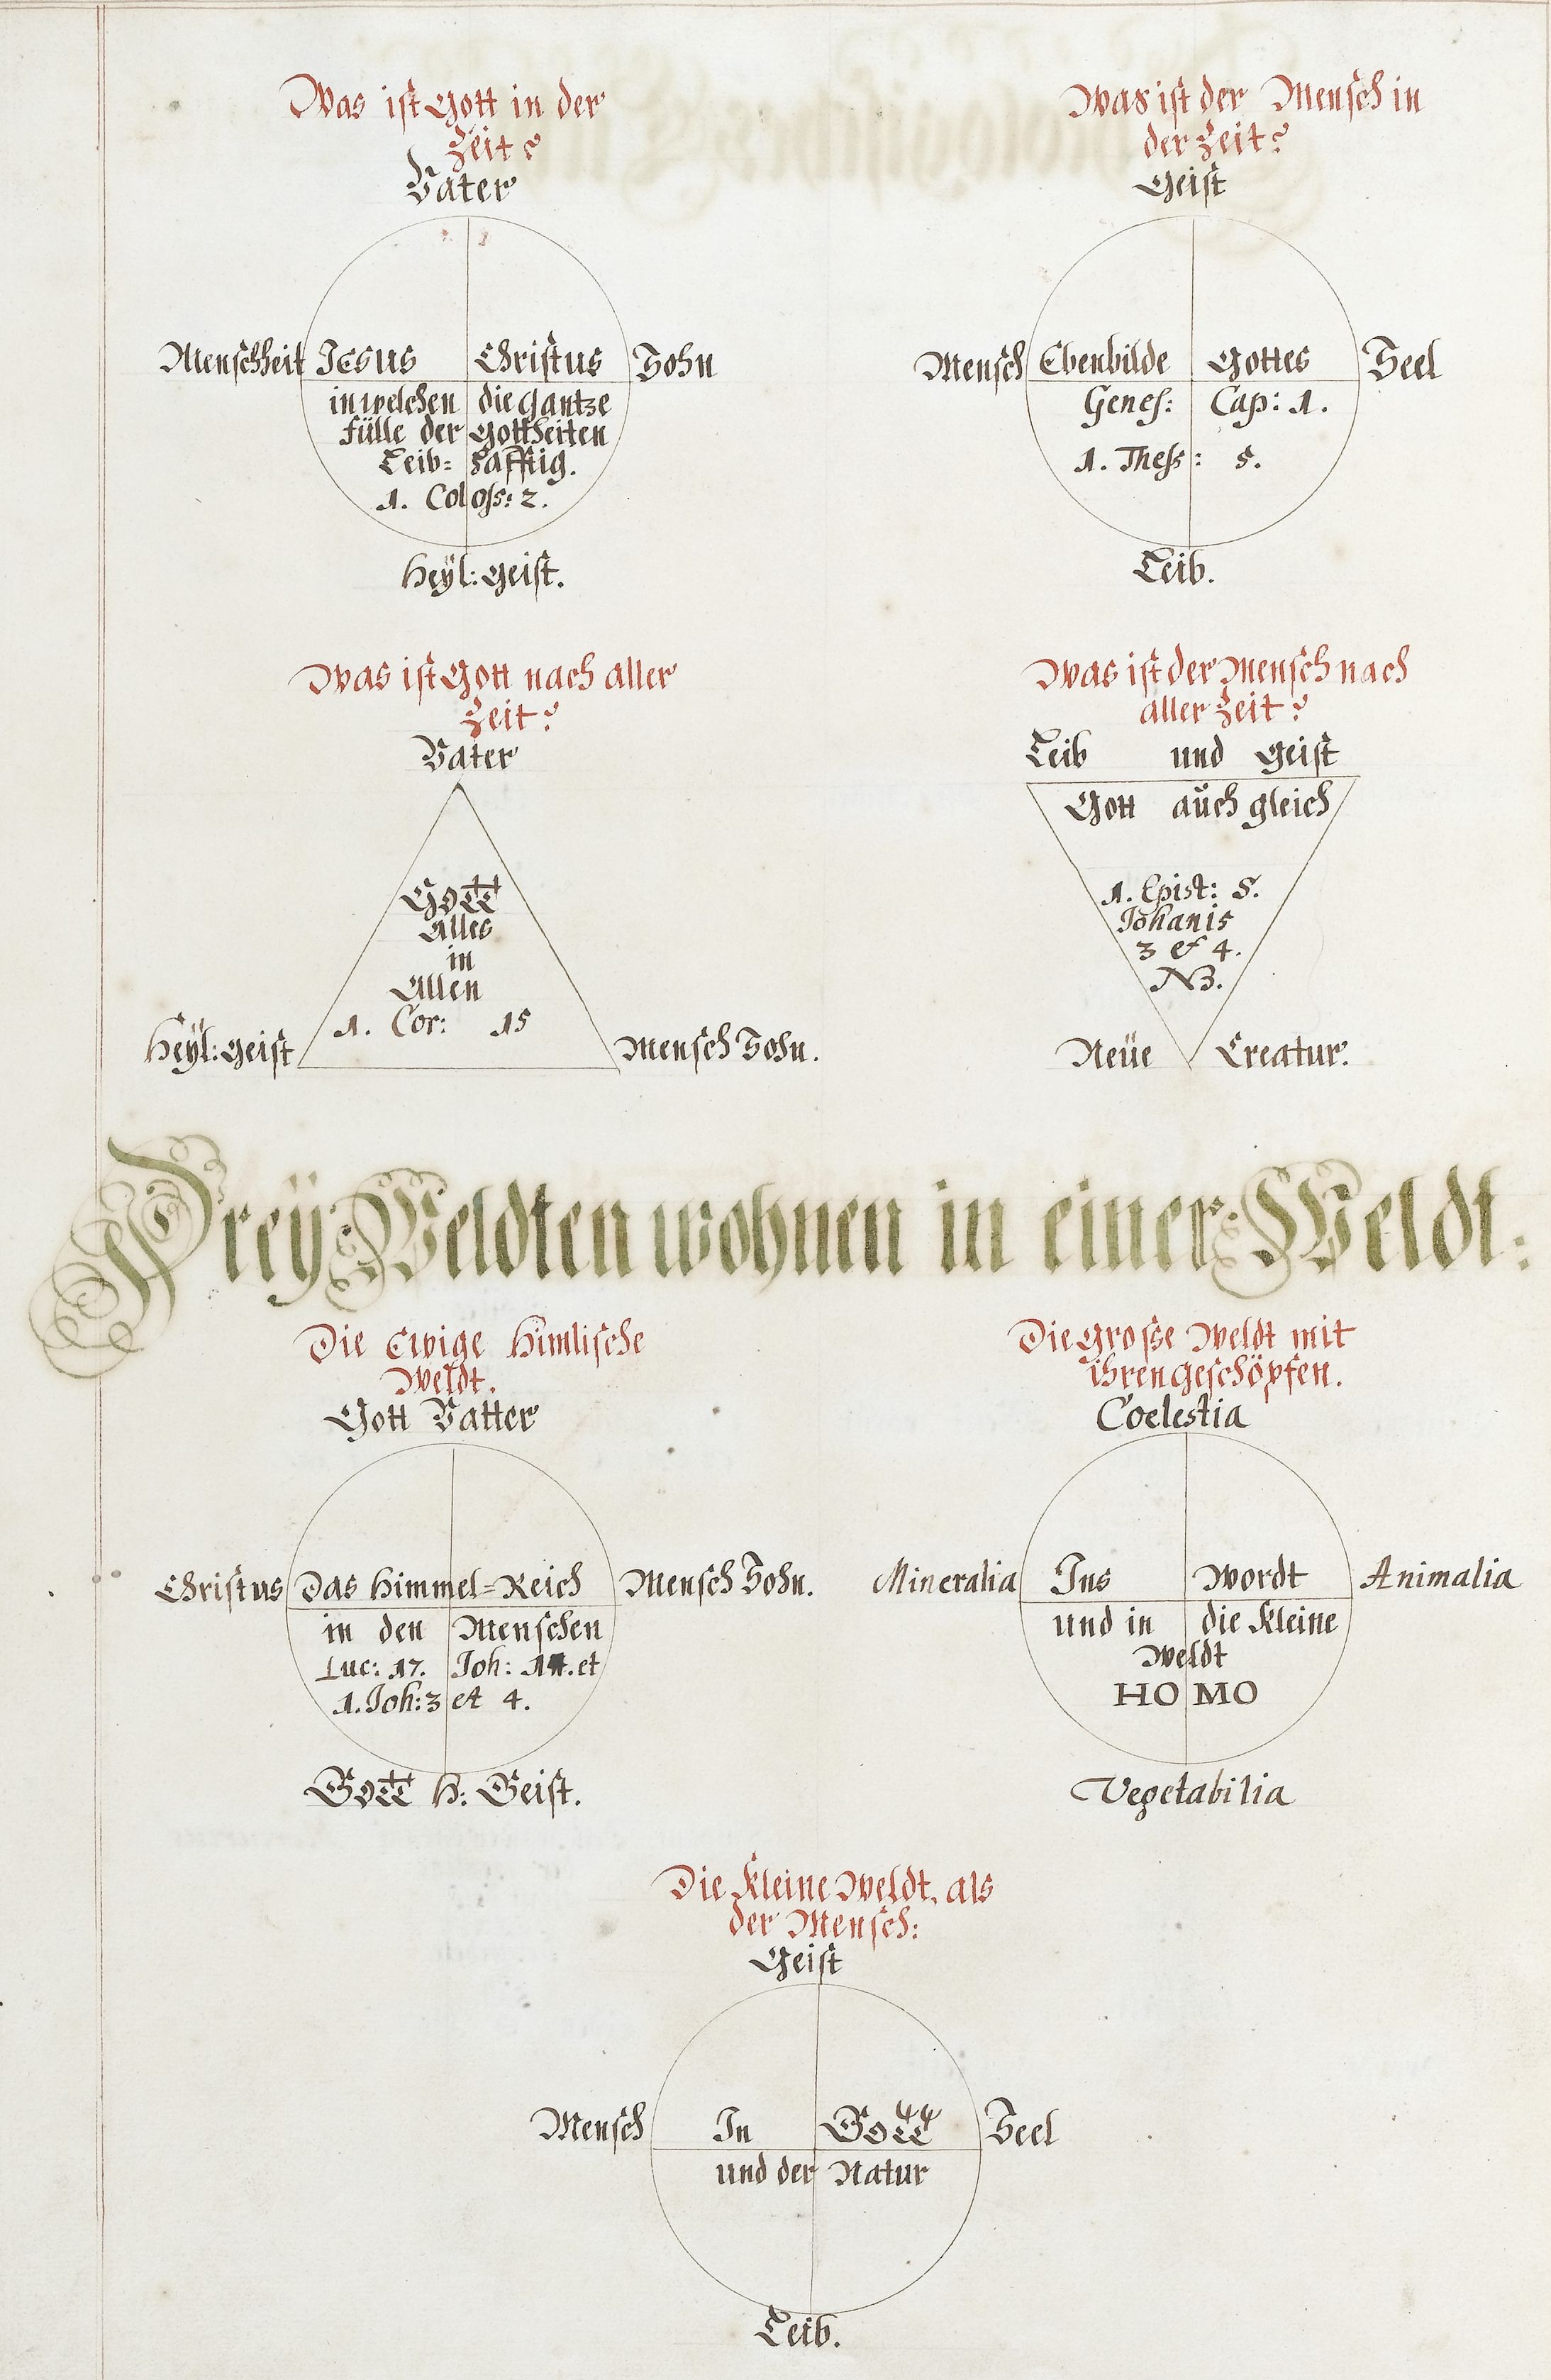 Was ist Gott in der
Zeit?
Vater
Menschheit Jesus Christus Sohn
in welchen die gantze
fülle der Gottheiten
Leib= hafftig.
1. Coloss: 2.
Heÿl: Geist.
Was ist der Mensch in
der Zeit?
Geist
Mensch Ebenbilde Gottes Seel
Genes: Cap: 1.
1. Thess: 5.
Leib.
Was ist Gott nach aller
Zeit?
Vater
GOTT
Alles
in
Allen
1. Cor: 15
Heÿl: Geist Mensch Sohn.
Was ist der Mensch nach
aller Zeit?
Leib und Geist
Gott auch gleich
1. Epist: 5.
Johanis
3 et 4.
NB.
Neüe Creatur.
Dreÿ Weldten wohnen in einer Weldt:
Die Ewige Himlische
Weldt.
Gott Vatter
Christus Das Himmel=Reich Mensch Sohn.
in den Menschen
Luc: 17. Joh: et
1. Joh: 3 et 4.
GOTT H: Geist.
Die Grosse Weldt mit
ihren geschöpfen.
Coelestia
Mineralia Ins Wordt Animalia
und in die Kleine
Weldt
HOMO
Vegetabilia
Die Kleine Weldt, als
der Mensch:
Geist
Mensch In GOTT Seel
und der Natur
Leib.